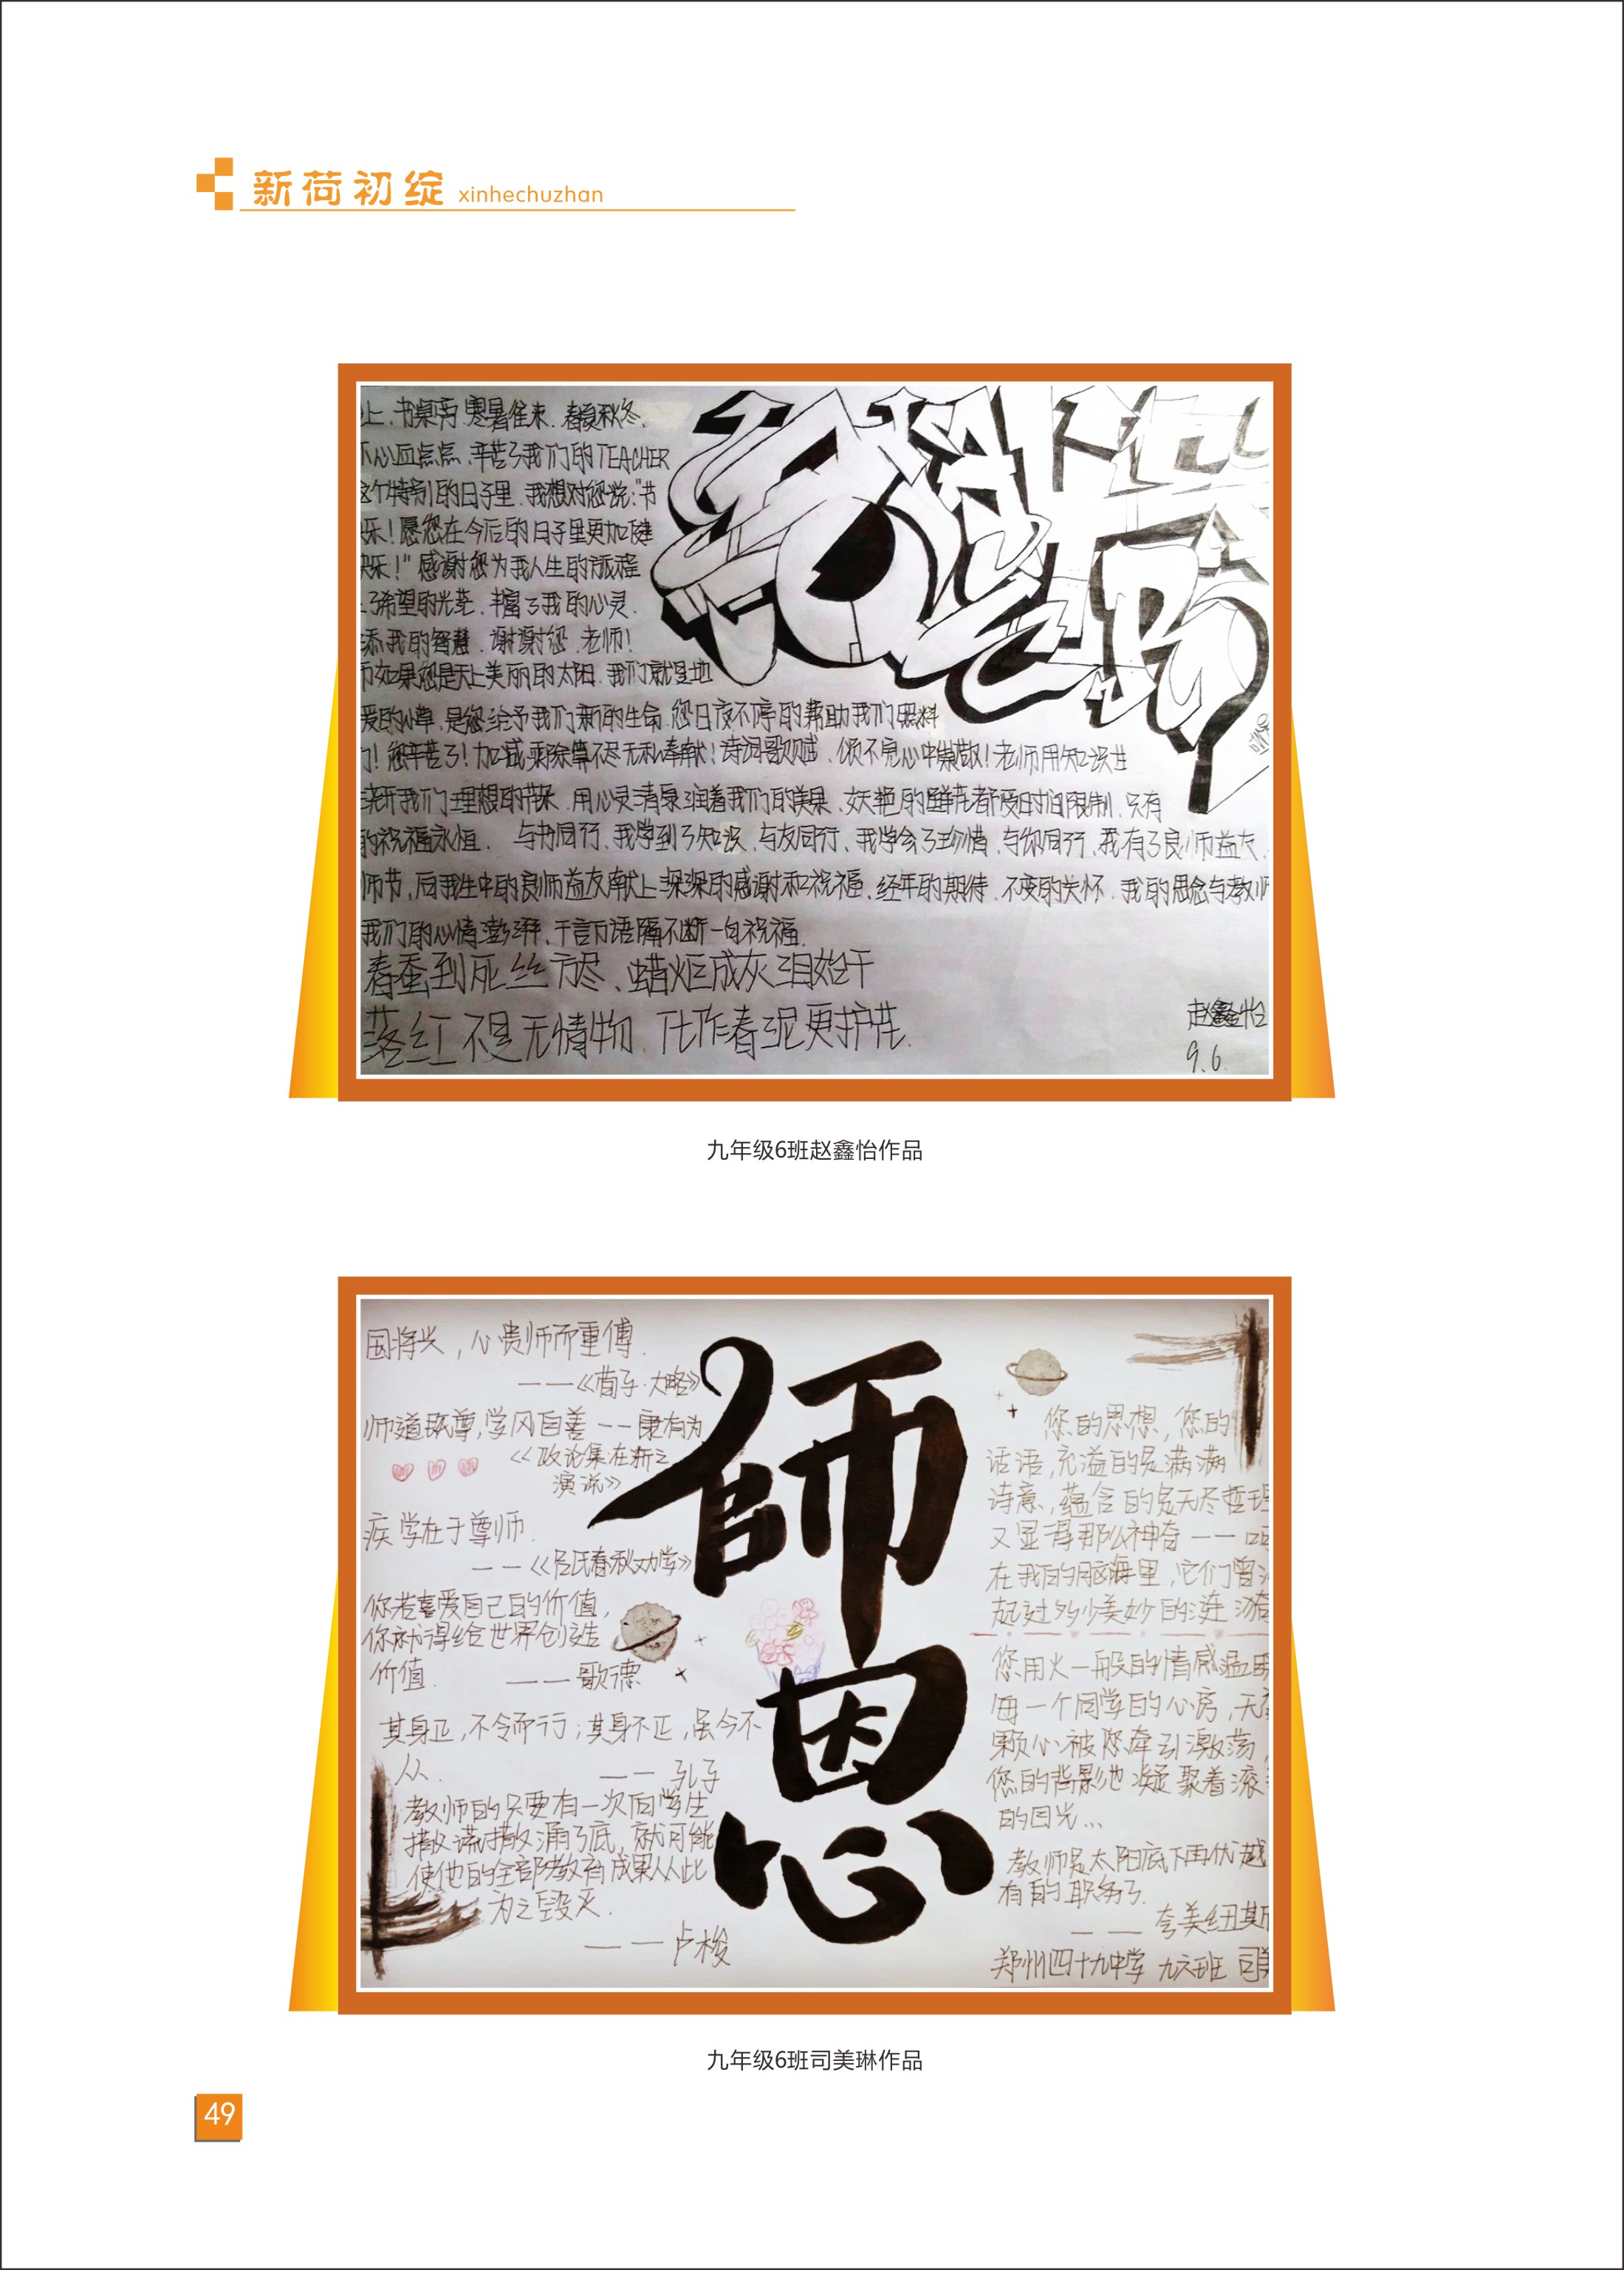 新荷初绽 xinhechuzhan
上、书桌旁、寒暑往来、春夏秋冬、
心血点点、辛苦了我们的TEACHER
这个特别的日子里、我想对您说:"节
乐!愿您在今后的日子里更加健
快乐!"感谢您为我人生的旅程
了希望的光芒、丰富了我的心灵、
添我的智慧、谢谢您、老师!
师如果您是天上美丽的太阳、我们就是地
爱的小草、是您给予我们新的生命、您日夜不停的帮助我们照料
们!您辛苦了!加减乘除算不尽无私奉献!诗词歌赋、颂不完心中崇敬!老师用知识
浇开我们理想的花朵、用心灵清泉润着我们的美果、妖艳的鲜花都受时间限制、只有
的祝福永恒、与书同行、我学到了知识、与友同行、我学会了珍惜、与你同行、我有了良师益友、
师节,向我生中的良师益友献上深深的感谢和祝福、经年的期待、不变的关怀、我的思念与教师
我们的心情澎湃、千言万语隔不断一句祝福、
春蚕到死丝方尽、蜡炬成灰泪始干
落红不是无情物、化作春泥更护花、
赵鑫怡
9.6
九年级6班赵鑫怡作品
国将兴,心贵师而重傅.
——《荀子·大略》
师道既尊,学风自善——康有为
《政论集·在浙之
演说》
疾学在于尊师.
——《吕氏春秋·劝学》
你若喜爱自己的价值,
你就得给世界创造
价值.——歌德
其身正,不令而行;其身不正,虽令不
从.——孔子
教师的只要有一次向学生
撒谎撒漏了底,就可能
使他的全部教育成果从此
为之毁灭.
——卢梭
師恩
您的思想,您的
话语,充溢的是满满
诗意,蕴含的是无尽哲理
又显得那么神奇——
在我的脑海里,它们曾
起过多少美妙的涟漪
您用火一般的情感温暖
每一个同学的心房,无
颗心被您牵引激荡,
您的背影也凝聚着滚
的目光...
教师是太阳底下再优越
有的职务了.
——夸美纽斯
郑州四十九中学 九六班 司美
九年级6班司美琳作品
49